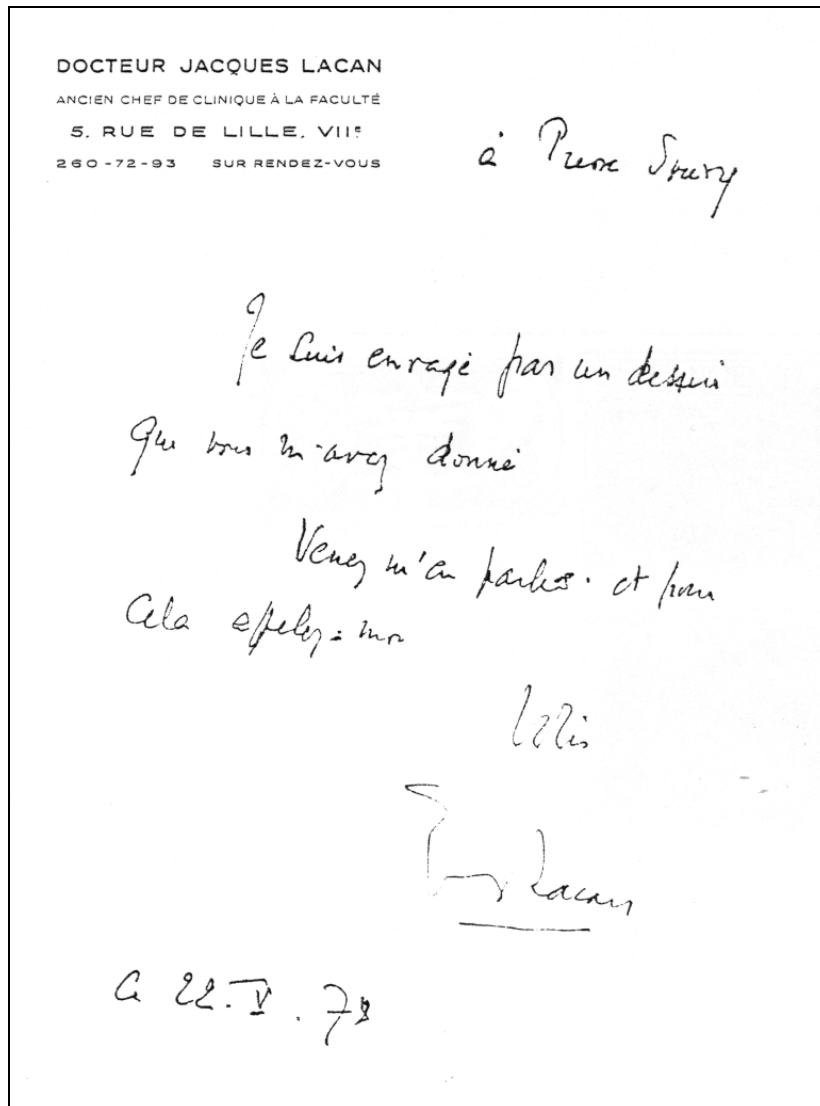 DOCTEUR JACQUES LACAN
ANCIEN CHEF DE CLINIQUE À LA FACULTÉ
5, RUE DE LILLE, VIIe
260-72-93 SUR RENDEZ-VOUS
à Pierre Soury
Je suis enragé par un dessin
que vous m'avez donné
Venez m'en parler. et pour
cela appelez-moi
Lacan
Ce 22.V.78